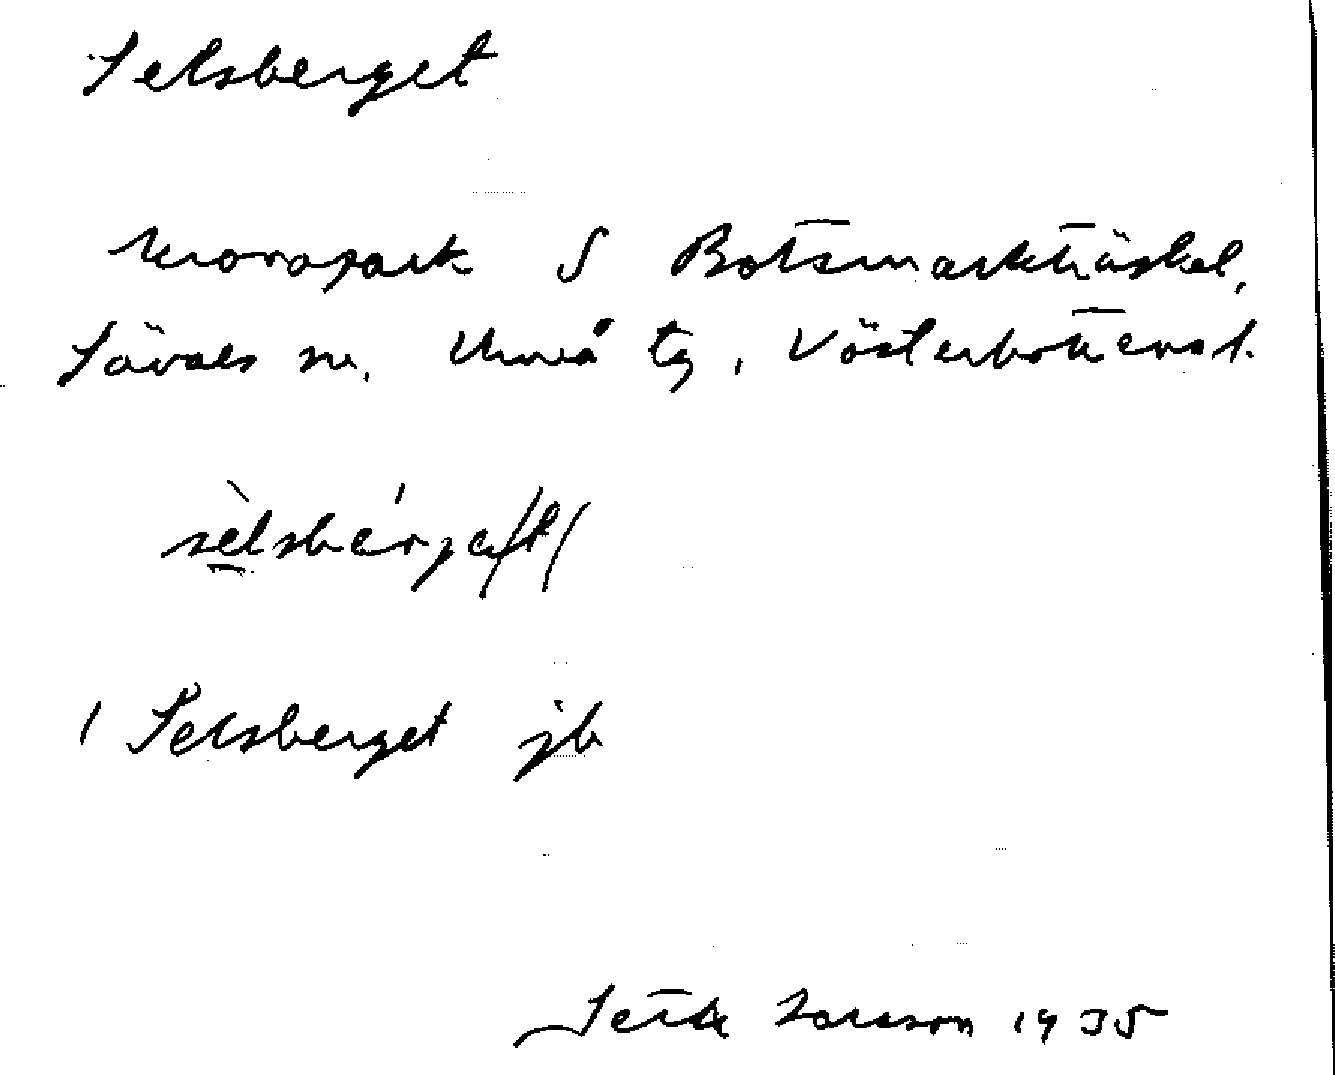 Selsberget
kronopark S Botsmarkträsket,
Sävars sn, Umeå tg, Västerbottensl.
sèlsbérjə/t/
/ Selsberget jb
Larsson 1935